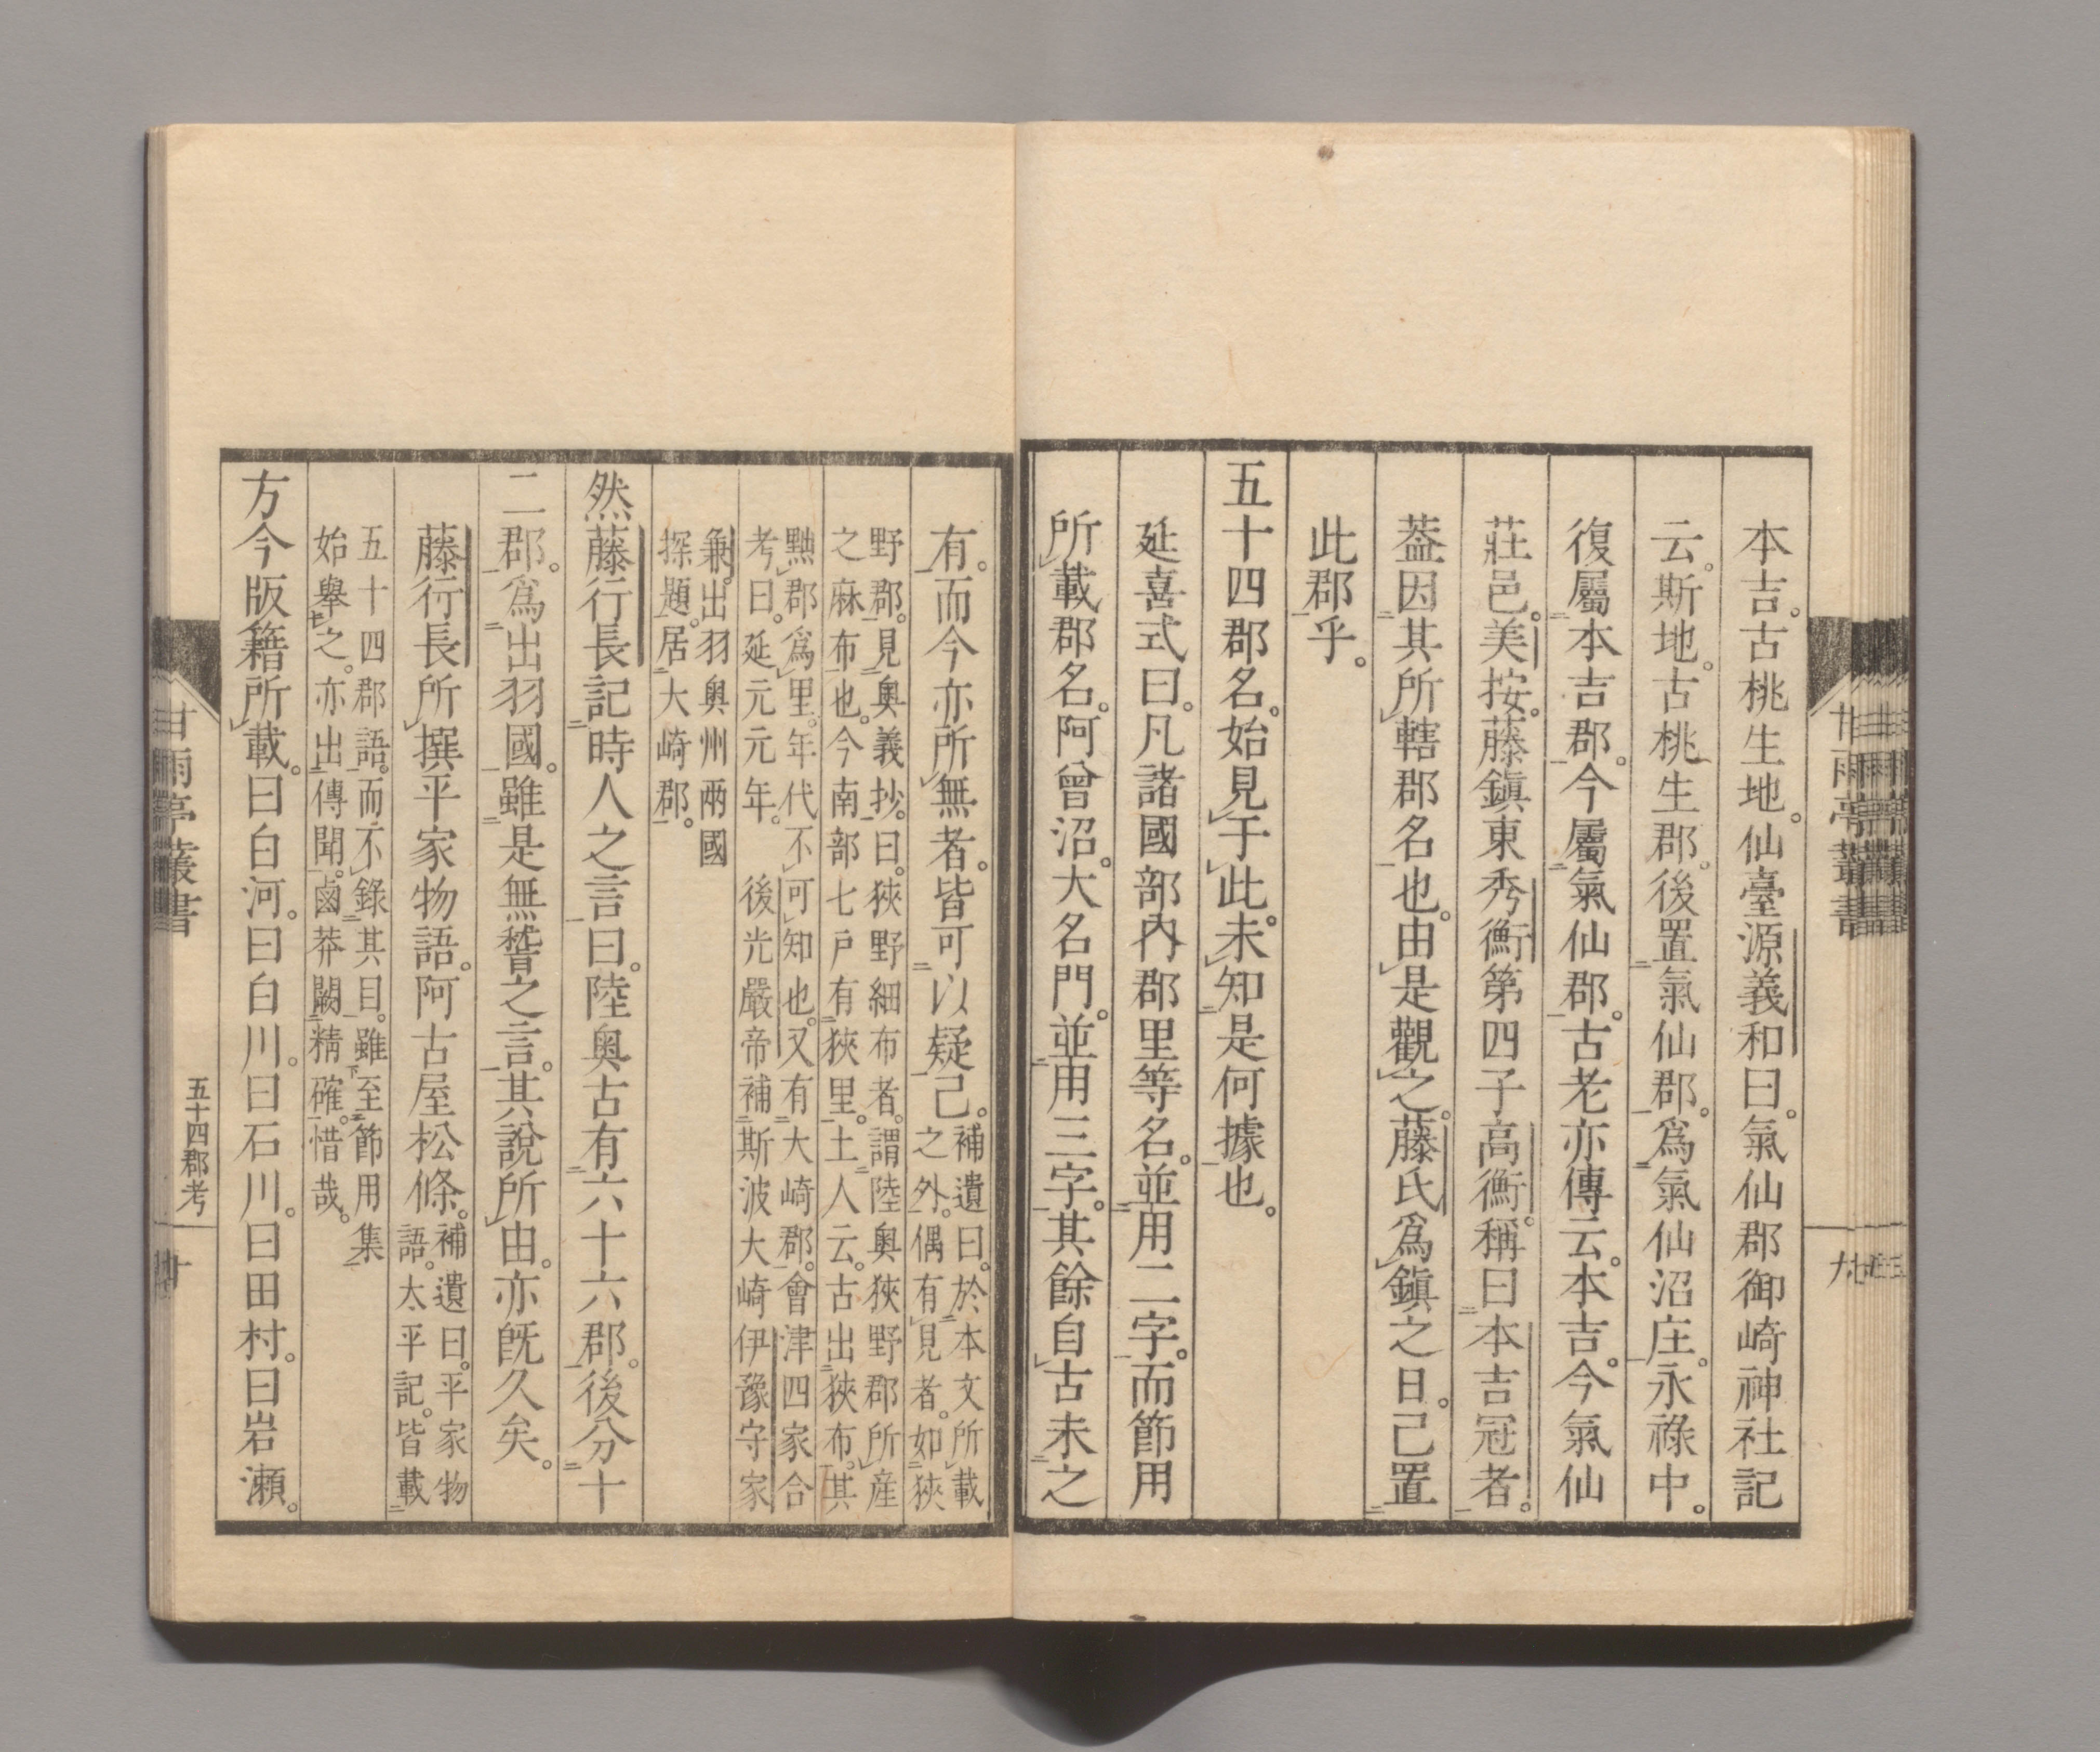 本吉。古桃生地。仙臺源義和曰。氣仙郡御崎神社記
云。斯地。古桃生郡。後置氣仙郡。爲氣仙沼庄。永祿中。
復屬本吉郡。今屬氣仙郡。古老亦傳云。本吉。今氣仙
莊邑。美按。藤鎭東秀衡第四子高衡。稱曰本吉冠者。
葢因其所轄郡名也。由是觀之。藤氏爲鎭之日。己置
此郡乎。
五十四郡名。始見于此。未知是何據也。
延喜式曰。凡諸國部內郡里等名。並用二字。而節用
所載郡名。阿曾沼。大名門。並用三字。其餘自古未之
有。而今亦所無者。皆可以疑己。
補遺曰。於本文所載
之外。偶有見者。如狹
野郡。見奧義抄。曰。狹野細布者。謂陸奧狹野郡所産
之麻布也。今南部七戶有狹里。土人云。古出狹布。其
㸃郡爲里。年代不可知也。又有大崎郡。會津四家合
考曰。延元元年。後光嚴帝補斯波大崎伊豫守家
兼。出羽奧州兩國
探題。居大崎郡。
然藤行長記時人之言曰。陸奧古有六十六郡。後分十
二郡。爲出羽國。雖是無稽之言。其說所由。亦旣久矣。
藤行長所撰平家物語。阿古屋松條。
補遺曰。平家物
語。太平記。皆載
五十四郡語。而不錄其目。雖至節用集
始擧之。亦出傳聞。鹵莽闕精確。惜哉。
方今版籍所載。曰白河。曰白川。曰石川。曰田村。曰岩瀬。
甘雨亭叢書
五十四郡考
十
甘雨亭叢書
九